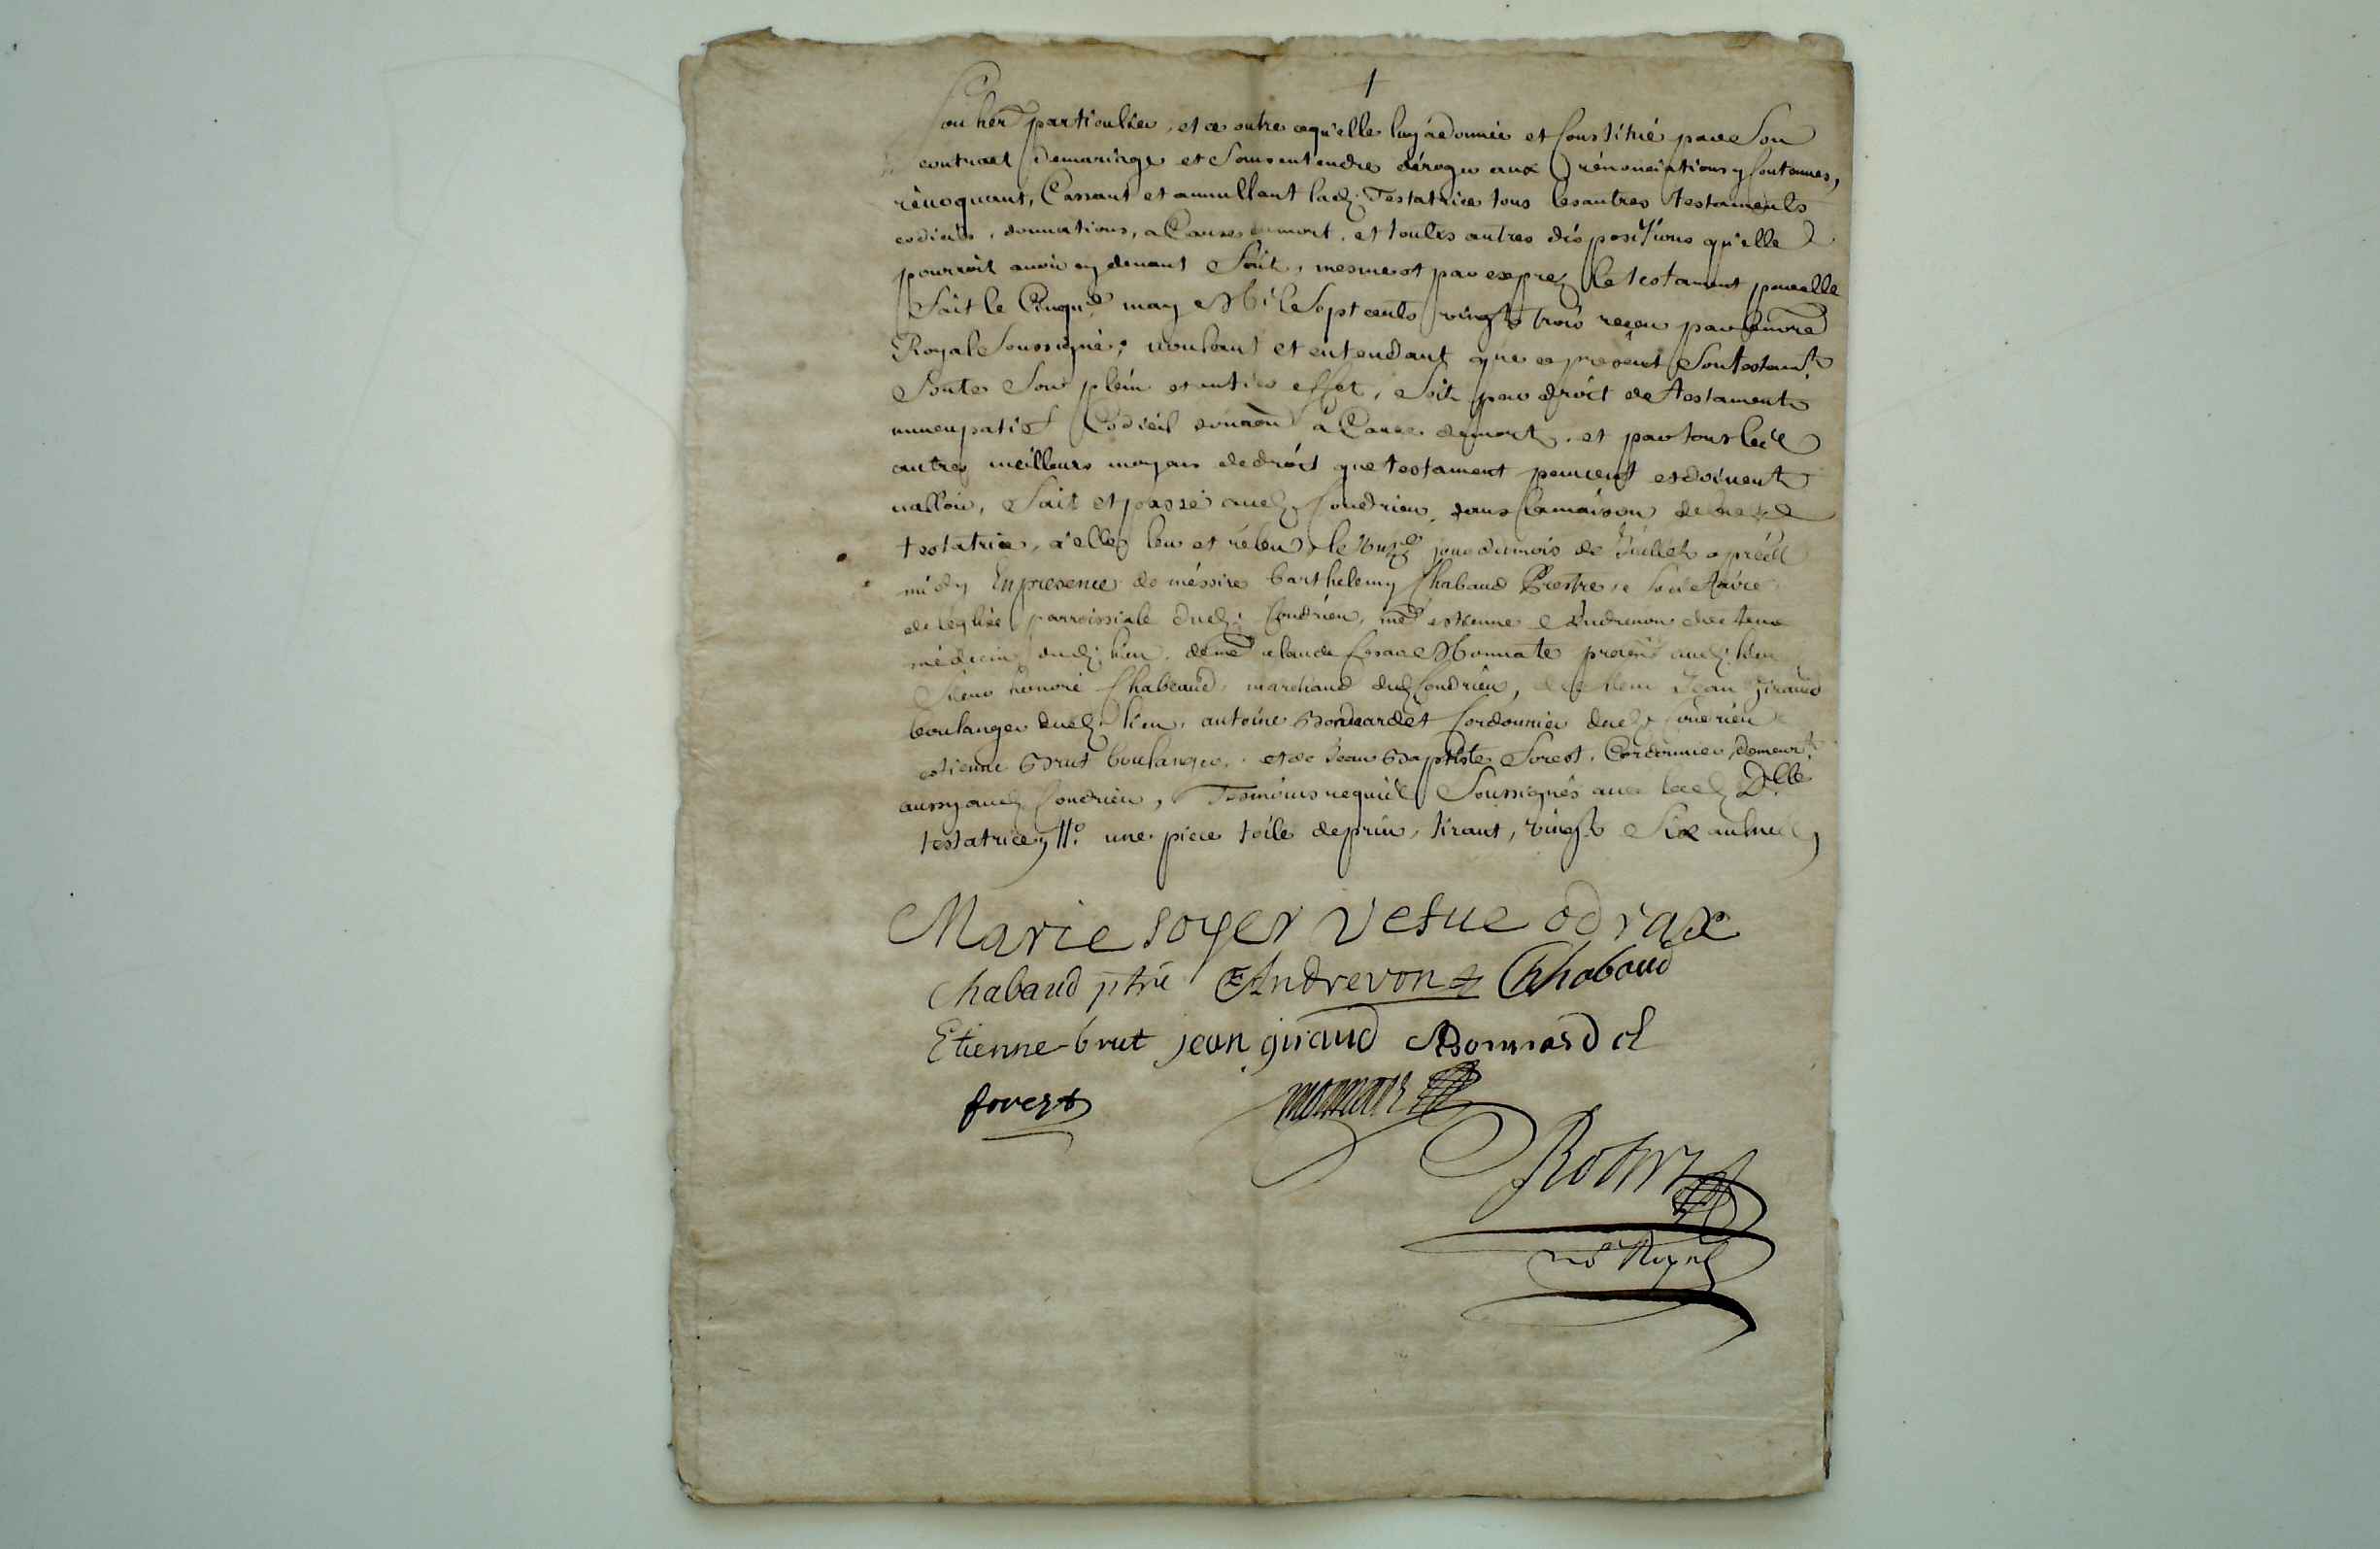 †
son her particulier, et ce outre cequ'elle luy a donnée et Constitué par Son
contract de mariage et Sans entendre déroger aux rénonciations y Contenues,
révoquant, Cassant et annullant lad. Testatrice tous les autres testaments
codicils, donnations, a Cause de mort, et toutes autres dispositions qu'elle
pourroit avoir cy devant fait, mesme et par exprez le testament par elle
fait le Cinqme may Mil Sept cents vingt trois reçeu par le no.re
Royal Soussigné; voulant et entendant que ce present Son testamt
Sorte Son plein et entier effet, soit par droit de testament
nuncupatif Codicil donaõn à Cause de mort, et par tous les
autres meilleurs moyens de droit que testament peuvent et doivent
valloir, fait et passé aud. Condrieu, dans la maison de
testatrice, a elle leu et réleu, le jour du mois de Juillet après
midy En presence de méssire barthelemy Chabaud Prestre, Secretaire
de l'église parroissiale dud. Condrieu, me estienne Andrevon docteur
médecin dud. lieu, de me claude Cesar Monnate aud. lieu
Sieur honoré Chabeaud, marchand dud. Condrieu, Jean Giraud
boulanger dud. lieu, antoine Bonnardet Cordonnier dud. Condrieu
estienne Brut boulanger, et de Jean Baptiste Forest, Cordonnier, demeurt
aussy aud. Condrieu, Tesmoins requis Soussignés avec lad. Dlle
testatrice, une piece toile de prin, tirant, vingt Six aulnes,
Marie soyer vesue odrax
Chabaud ptre EAndrevon Chabaud
Etienne-brut jean giraud ABonnardel
forest
nore Royal